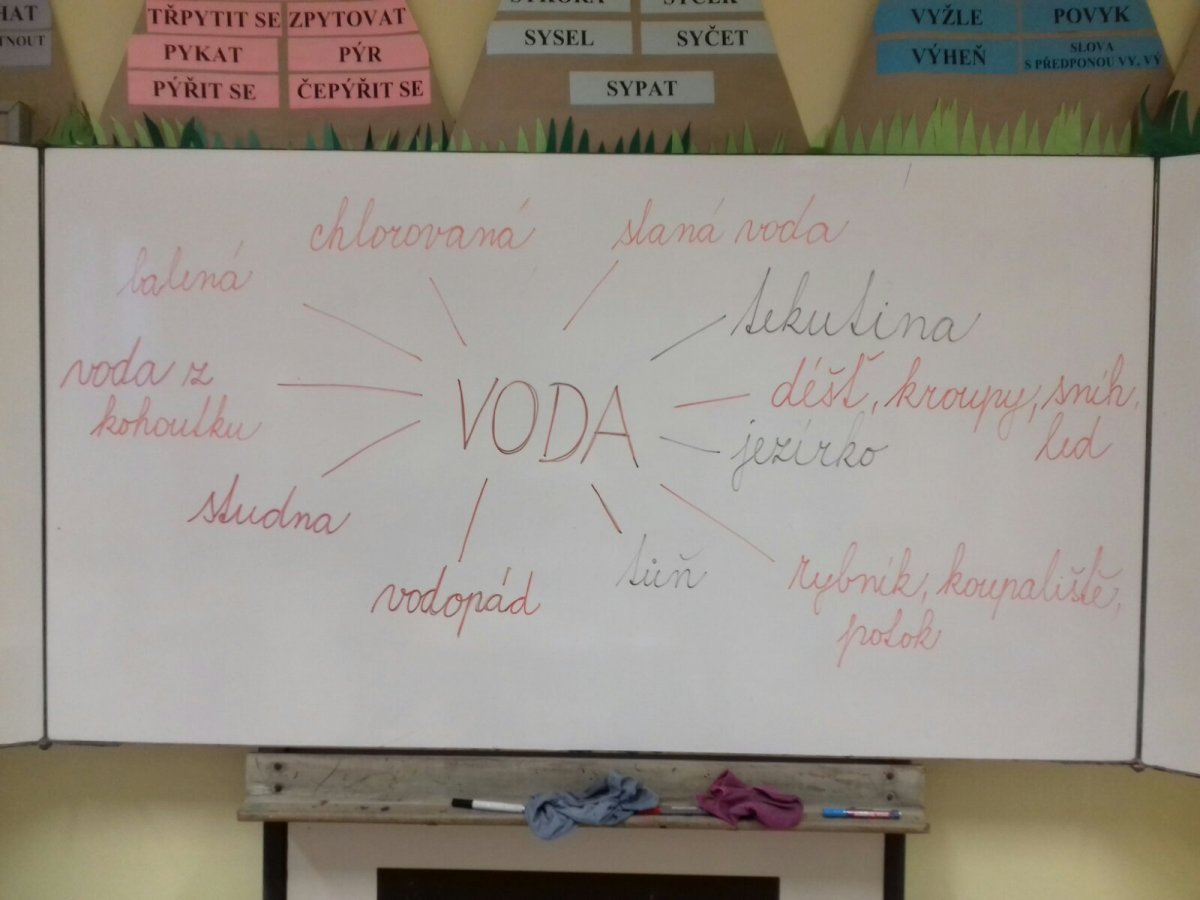 HAT
TNOUT
TŘPYTIT SE
ZPYTOVAT
PYKAT
PÝR
PÝŘIT SE
ČEPÝŘIT SE
SYSEL
SYČET
SYPAT
VYŽLE
POVYK
VÝHEŇ
SLOVA
S PŘEDPONOU VY, VÝ
chlorovaná
slaná voda
balená
tekutina
voda z
kohoutku
VODA
déšť, kroupy, sníh,
led
jezírko
studna
vodopád
tůň
rybník, koupaliště,
potok